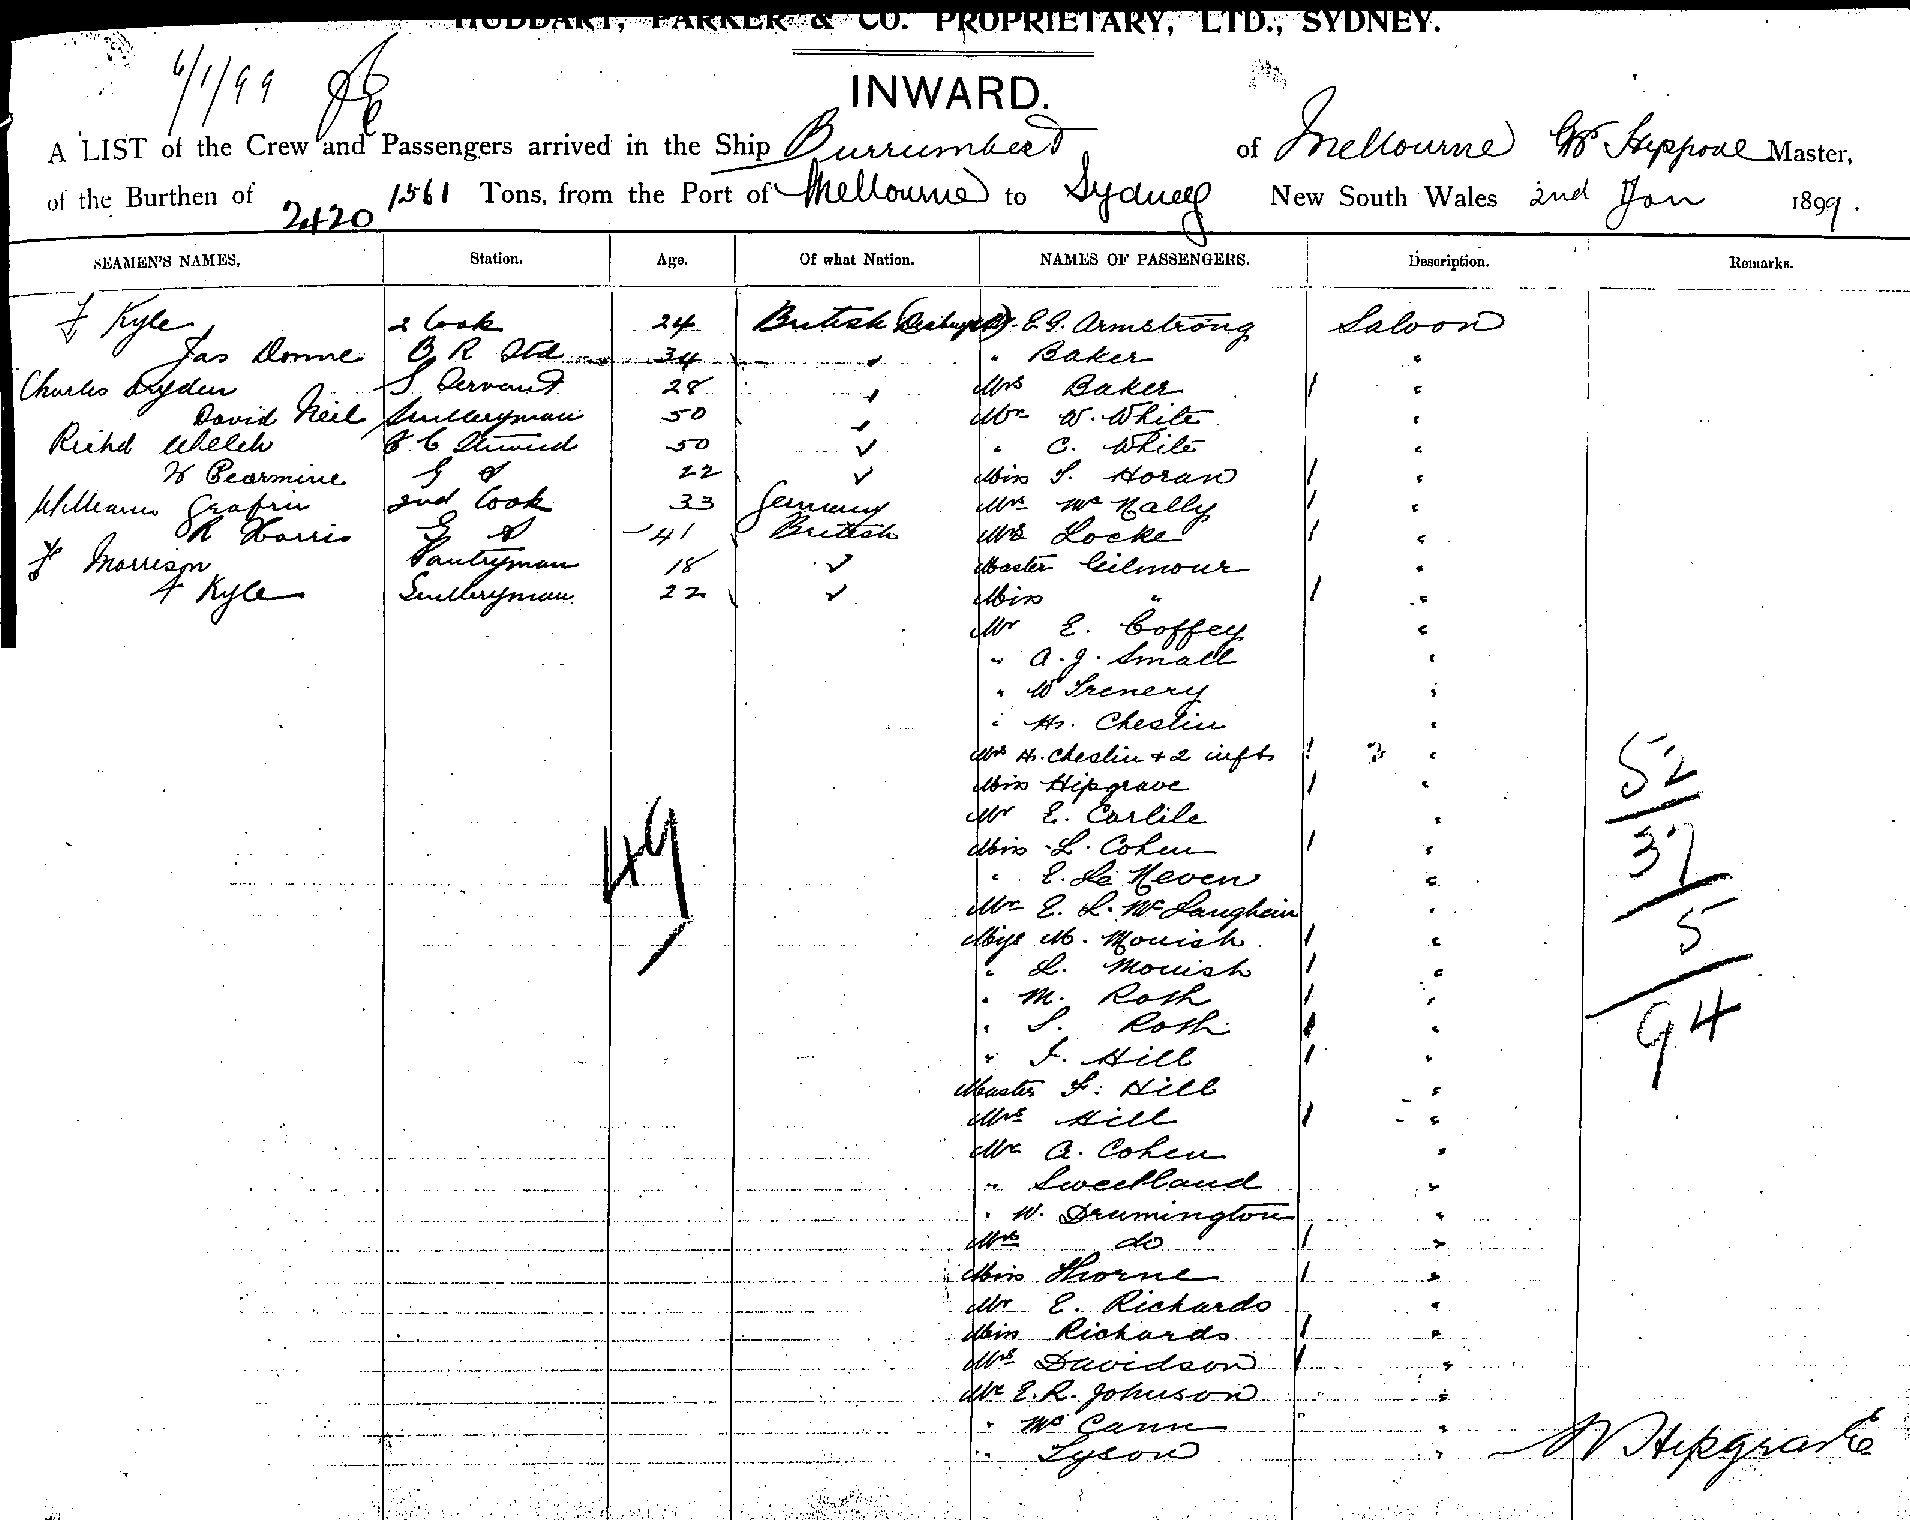 HUDDART, PARKER & CO. PROPRIETARY, LTD., SYDNEY.
6/1/99
INWARD.
A LIST of the Crew and Passengers arrived in the Ship Burrumbeet of Melbourne Master,
of the Burthen of 2420 1561 Tons, from the Port of Melbourne to Sydney New South Wales 2nd Jan 1899.
SEAMEN'S NAMES. Station. Age. Of what Nation. NAMES OF PASSENGERS. Description. Remarks.
Kyle 2 Cook 24 British E. G. Armstrong Saloon
Jas Donne B R Std 34 " " Baker "
Charles 28 " Mrs Baker "
David Neil Sculleryman 50 " Mr W. White "
Richd Welch 50 " " C. White "
Pearmine G S 22 " Miss S. Horan "
William 2nd Cook 33 Germany Mrs McNally "
R Harris G S 41 British Mrs Locke "
Morrison Pantryman 18 " Master Gilmour "
Kyle Sculleryman 22 " Miss " "
Mr E. Coffey "
" A. J. Small "
" W Trenery "
" H. Cheslin "
Mrs H. Cheslin + 2 infts 3 "
Miss Hipgrave "
Mr E. Carlile "
Miss L. Cohen "
" E. Le Neven "
Mr E. L. McLaughlin "
M. Monish "
" L. Monish "
" M. Roth "
" S. Roth "
" Hill "
Master Hill "
Mrs Hill "
Mr A. Cohen "
" Sweetland "
" W. Drumington "
Mrs do "
Miss Thorne "
Mr E. Richards "
Miss Richards "
Mrs Davidson "
Mr E. R. Johnson "
" McCann "
" Tyson "
49
52
37
5
94
W Hipgrave